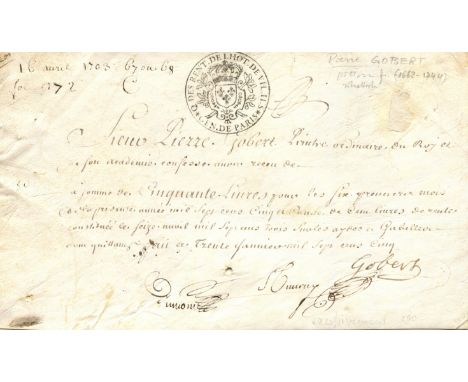 16 avril 1703 67 ou 68
fol 272
Q. DES RENT. DE LHOT. DE VIL.
GEN. DE PARIS
Pierre GOBERT
(1662-1744)
Sieur Pierre Gobert Peintre ordinaire du Roy et
de son academie confesse avoir receu de
la somme de Cinquante Livres pour les six premiers mois
de la presente année mil sept cens cinq a cause de Cent livres de rente
constituée le seize avril mil sept cens trois sur les aydes et Gabelles
dont quittance fait ce Trente Janvier mil sept cens cinq
Gobert